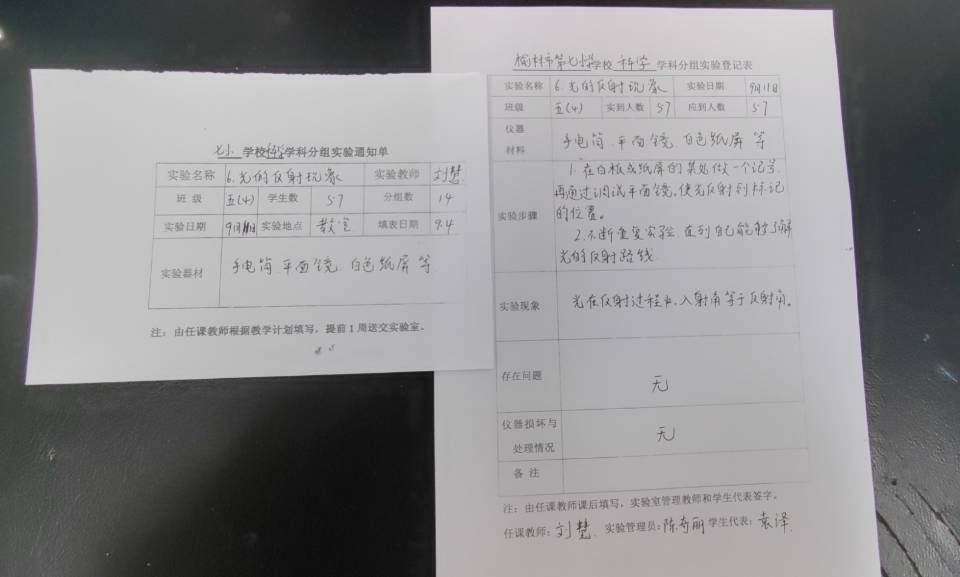 七小 学校科学学科分组实验通知单
实验名称 6.光的反射现象 实验教师 刘慧
班 级 五(4) 学生数 57 分组数 14
实验日期 9月11日 实验地点 教室 填表日期 9.4
实验器材 手电筒 平面镜 白色纸屏 等
注：由任课教师根据教学计划填写，提前1周送交实验室。
榆林市第七小学学校 科学 学科分组实验登记表
实验名称 6.光的反射现象 实验日期 9月11日
班级 五(4) 实到人数 57 应到人数 57
仪器
材料 手电筒 平面镜 白色纸屏 等
实验步骤
1.在白板或纸屏的某处做一个记号,
再通过调试平面镜,使光反射到标记
的位置。
2.不断重复实验,直到自己能够了解
光的反射路线.
实验现象 光在反射过程中,入射角等于反射角。
存在问题 无
仪器损坏与
处理情况 无
备 注
注：由任课教师课后填写，实验室管理教师和学生代表签字。
任课教师：刘慧 实验管理员：陈奇丽 学生代表：袁泽